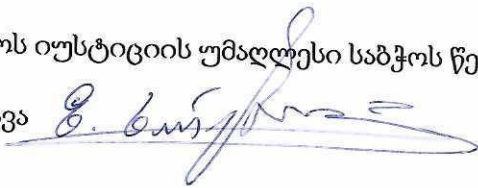 ოს იუსტიციის უმაღლესი საბჭოს წე
ვა